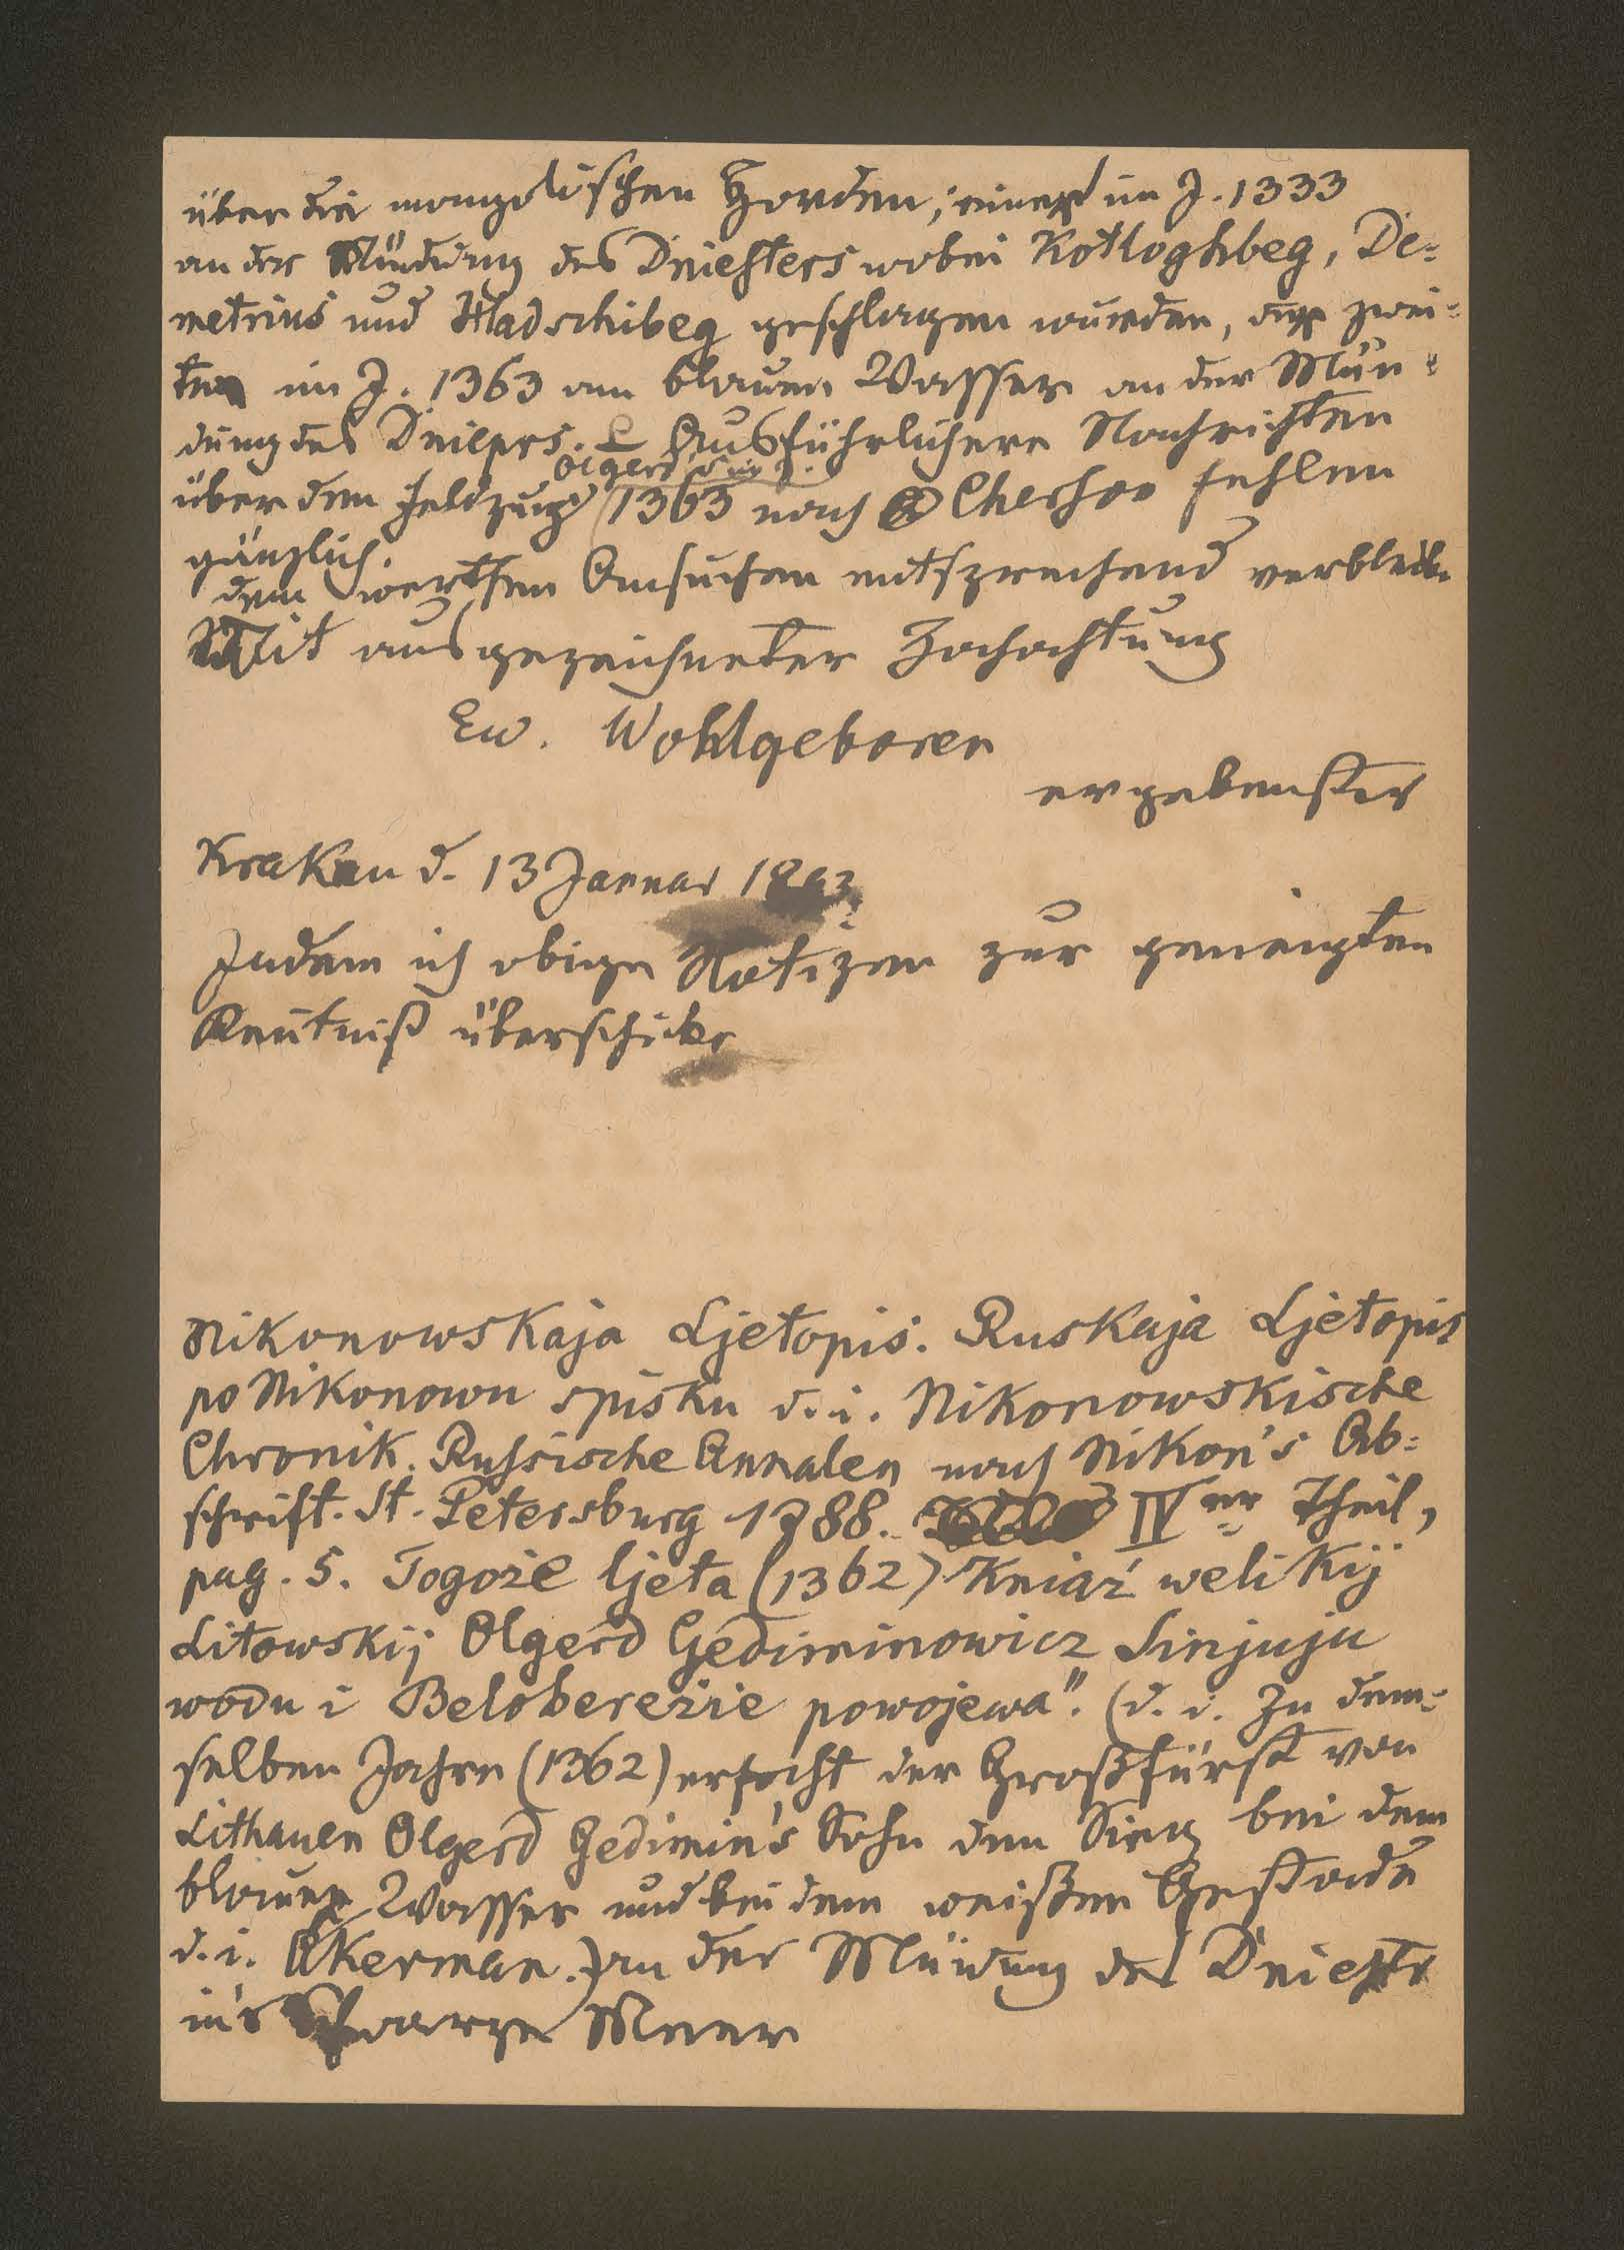 über die mongolischen Horden; einen im J. 1333
an der Mündung des Dniesters wobei Kotloghbeg, De-
metrius und Hadschibeg geschlagen wurden, den zwei-
ten im J. 1363 am blauen Wasser an der Mün-
dung des Dnieprs. Ausführlichere Nachrichten
Olgerd's im J.
über den Feldzug 1363 nach Cherson fehlen
gänzlich.
dem werthen Ansuchen entsprechend verbleibe
Mit ausgezeichneter Hochachtung
Ew. Wohlgeboren
ergebenster
Krakau d. 13 Januar
Indem ich obige Notizen zur geneigten
Kentniß überschicke
Nikonowskaja Ljetopis. Ruskaja Ljetopis
po Nikonowu spisku d. i. Nikonowskische
Chronik. Russische Annalen nach Nikon's Ab-
schrift. St. Petersburg 1788. IVer Theil,
pag. 5. Togože ljeta (1362) Kniaź welikij
Litowskij Olgerd Gediminowicz Sinjuju
wodu i Beloberežie powojewa". (d. i. Zu dem-
selben Jahre (1362) erfocht der Großfürst von
Lithauen Olgerd Gedimin's Sohn den Sieg bei dem
blauen Wasser und bei dem weißen Gestade
d. i. Akerman.) an der Mündung des Dniestr
in's Schwarze Meer